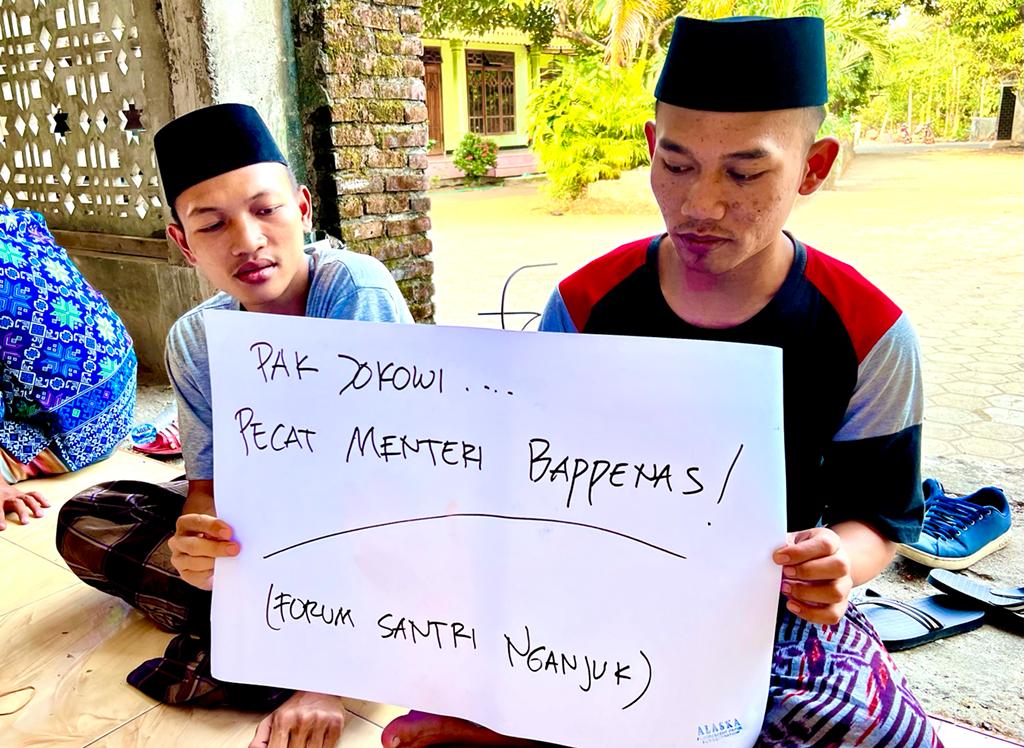 PAK JOKOWI....
PECAT MENTERI BAPPENAS!
(FORUM SANTRI NGANJUK)
ALASKA